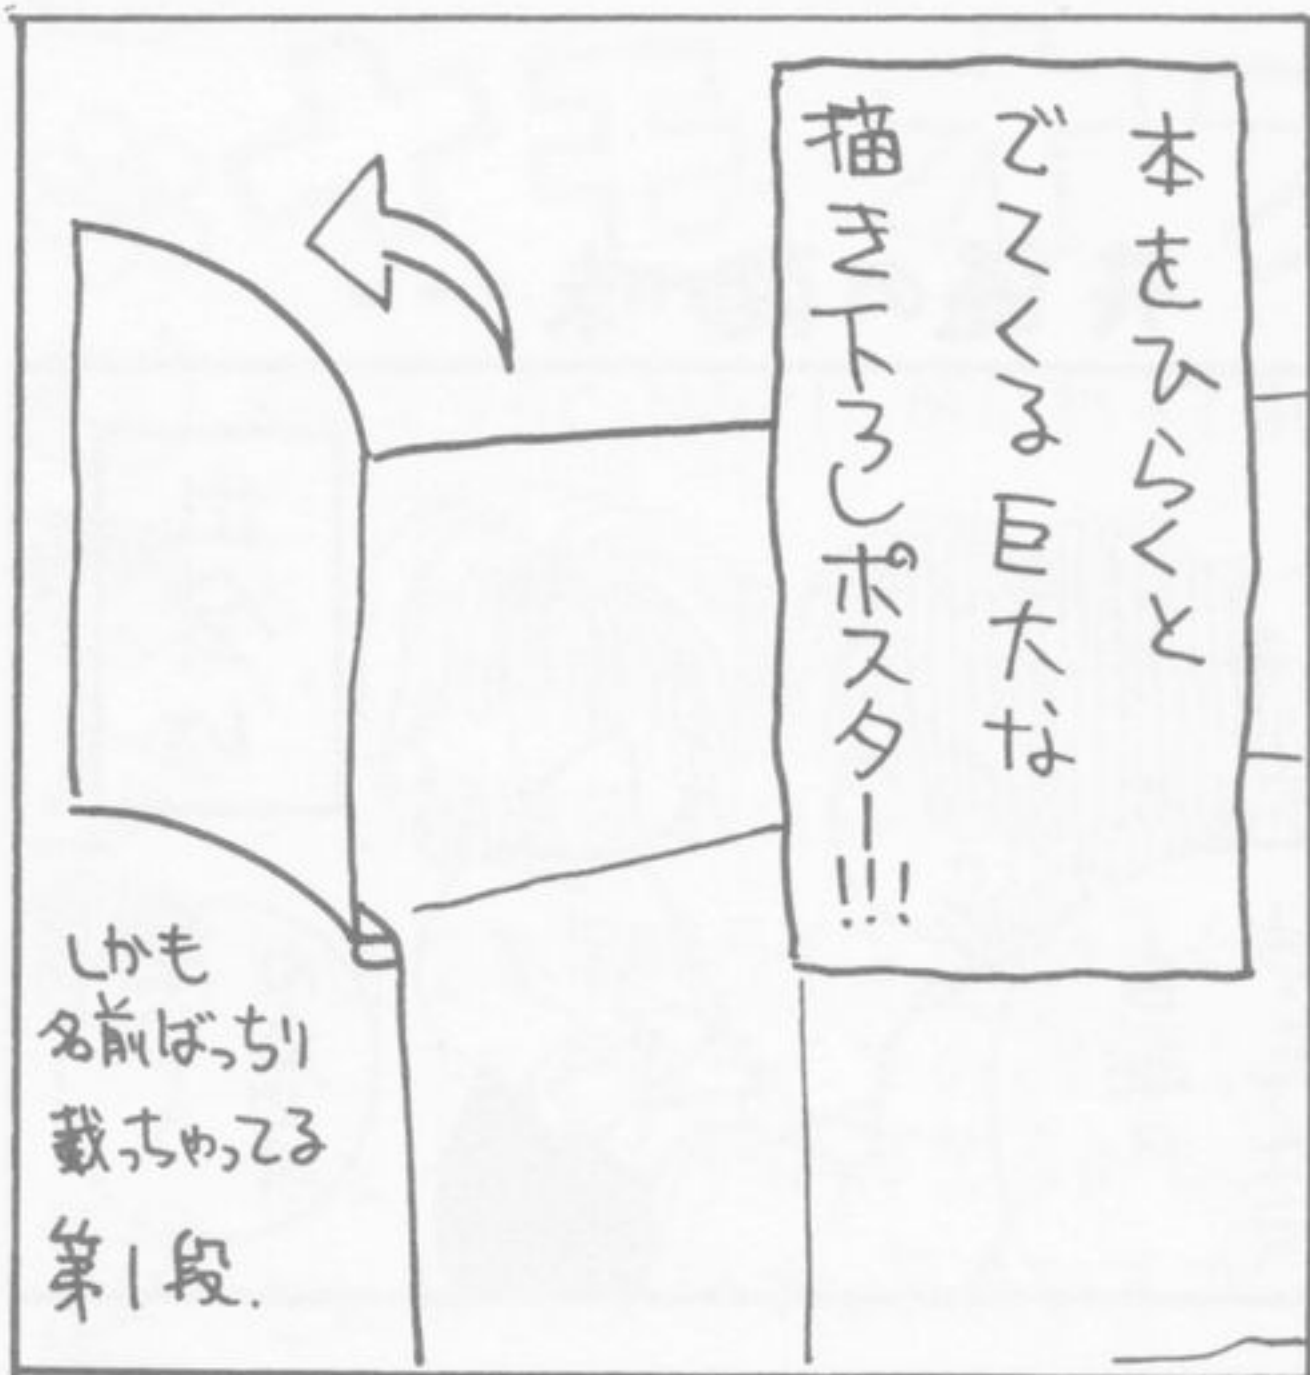 本をひらくと
でてくる巨大な
描き下ろしポスター!!!
しかも
名前ばっちり
載っちゃってる
第1段.